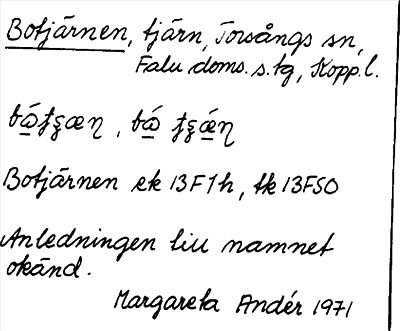 Botjärnen, tjärn, Torsångs sn,
Falu doms. s. tg, Kopp. l.
Botjärnen ek 13F1h, tk 13FSO
Anledningen till namnet
okänd.
Margareta Andér 1971